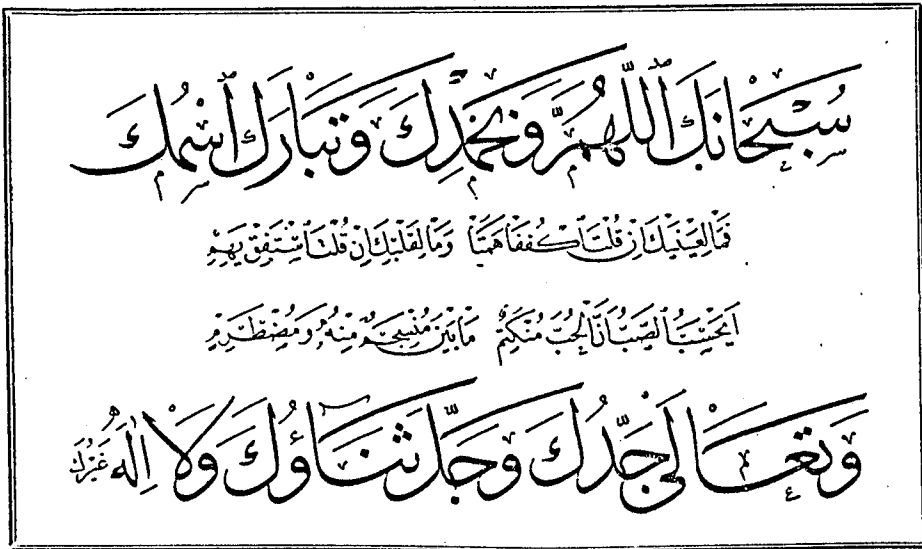 سُبْحَانَكَ ٱللّٰهُمَّ وَبِحَمْدِكَ وَتَبَارَكَ ٱسْمُكَ
فَمَا لِعَيْنَيْكَ اِنْ قُلْتَ ٱكْفُفَا هَمَتَا وَمَا لِقَلْبِكَ اِنْ قُلْتَ ٱسْتَفِقْ يَهِمِ
اَيَحْسَبُ ٱلصَّبُّ اَنَّ ٱلْحُبَّ مُنْكَتِمٌ مَا بَيْنَ مُنْسَجِمٍ مِنْهُ وَمُضْطَرِمِ
وَتَعَالٰى جَدُّكَ وَجَلَّ ثَنَاؤُكَ وَلَا اِلٰهَ غَيْرُكَ